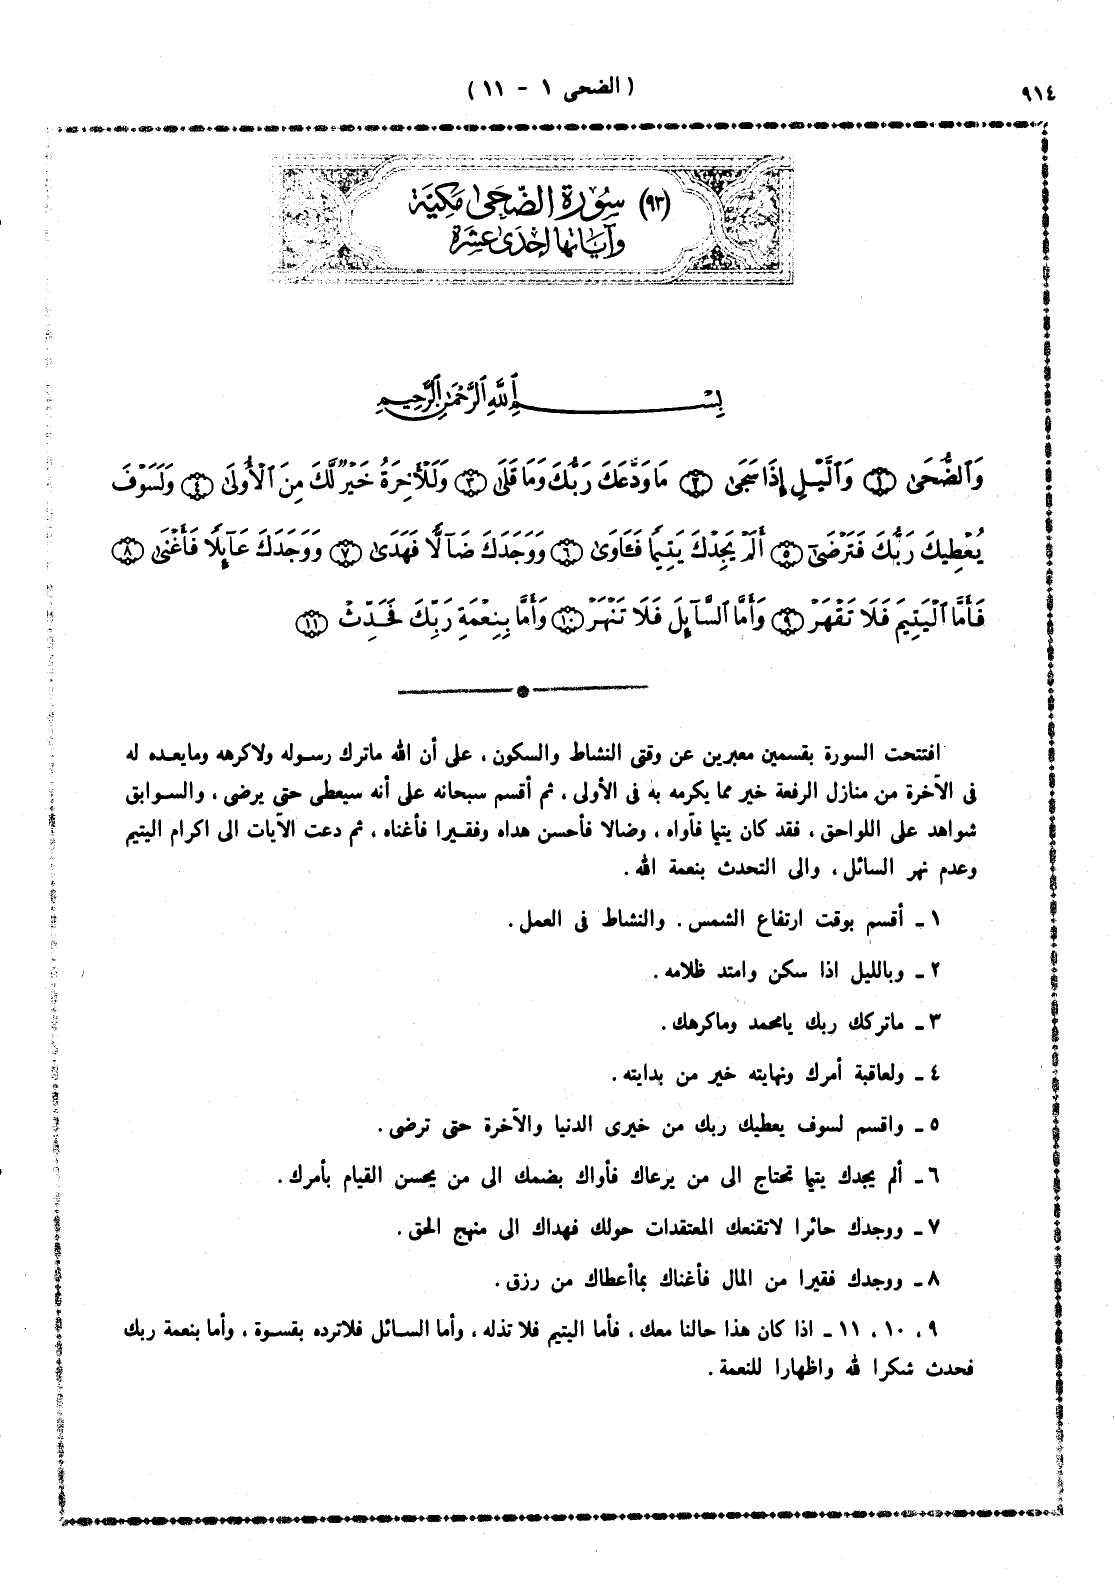 ٩١٤
( الضحى ١ - ١١ )
(٩٣) سُورَة الضّحَىٰ مَكيّة
وآيَاتهَا إحْدَىٰ عَشَرَة
بِسْمِ ٱللَّهِ ٱلرَّحْمَٰنِ ٱلرَّحِيمِ
وَٱلضُّحَىٰ ١ وَٱلَّيْلِ إِذَا سَجَىٰ ٢ مَا وَدَّعَكَ رَبُّكَ وَمَا قَلَىٰ ٣ وَلَلْأٓخِرَةُ خَيْرٌ لَّكَ مِنَ ٱلْأُولَىٰ ٤ وَلَسَوْفَ
يُعْطِيكَ رَبُّكَ فَتَرْضَىٰٓ ٥ أَلَمْ يَجِدْكَ يَتِيمًا فَـَٔاوَىٰ ٦ وَوَجَدَكَ ضَآلًّا فَهَدَىٰ ٧ وَوَجَدَكَ عَآئِلًا فَأَغْنَىٰ ٨
فَأَمَّا ٱلْيَتِيمَ فَلَا تَقْهَرْ ٩ وَأَمَّا ٱلسَّآئِلَ فَلَا تَنْهَرْ ١٠ وَأَمَّا بِنِعْمَةِ رَبِّكَ فَحَدِّثْ ١١
افتتحت السورة بقسمين معبرين عن وقتى النشاط والسكون ، على أن الله ماترك رسوله ولاكرهه ومايعده له
فى الآخرة من منازل الرفعة خير مما يكرمه به فى الأولى ، ثم أقسم سبحانه على أنه سيعطى حتى يرضى ، والسوابق
شواهد على اللواحق ، فقد كان يتيما فآواه ، وضالا فأحسن هداه وفقيرا فأغناه ، ثم دعت الآيات الى اكرام اليتيم
وعدم نهر السائل ، والى التحدث بنعمة الله .
١ ـ أقسم بوقت ارتفاع الشمس . والنشاط فى العمل .
٢ ـ وبالليل اذا سكن وامتد ظلامه .
٣ ـ ماتركك ربك يامحمد وماكرهك .
٤ ـ ولعاقبة أمرك ونهايته خير من بدايته .
٥ ـ واقسم لسوف يعطيك ربك من خيرى الدنيا والآخرة حتى ترضى .
٦ ـ ألم يجدك يتيما تحتاج الى من يرعاك فأواك بضمك الى من يحسن القيام بأمرك .
٧ ـ ووجدك حائرا لاتقنعك المعتقدات حولك فهداك الى منهج الحق .
٨ ـ ووجدك فقيرا من المال فأغناك بماأعطاك من رزق .
٩ ، ١٠ ، ١١ ـ اذا كان هذا حالنا معك ، فأما اليتيم فلا تذله ، وأما السائل فلاترده بقسوة ، وأما بنعمة ربك
فحدث شكرا لله واظهارا للنعمة .